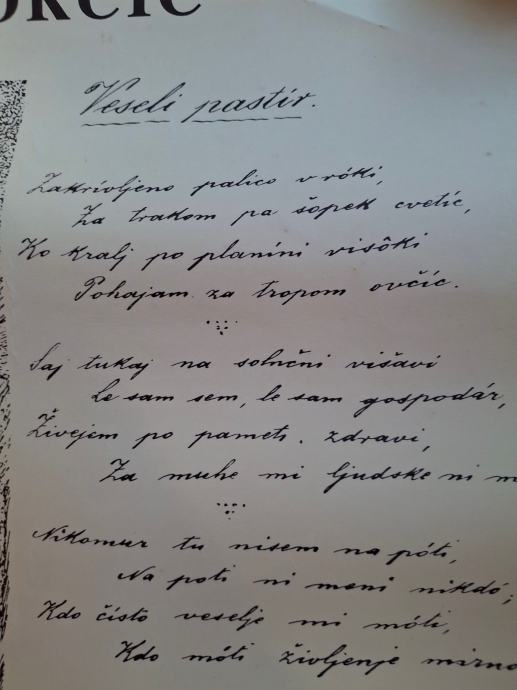 OKČIČ
Veseli pastír.
Zakrivljeno palico v rôki,
Za trakom pa šopek cvetic,
Ko kralj po planini visôki
Pohajam za tropom ovčic.
Saj tukaj na solnčni višavi
Le sam sem, le sam gospodár,
Živejem po pameti zdravi,
Za muhe mi ljudske ni m
Nikomur tu nisem na pôti,
Na poti ni meni nikdó;
Kdo čisto veselje mi móti,
Kdo móti življenje mirno